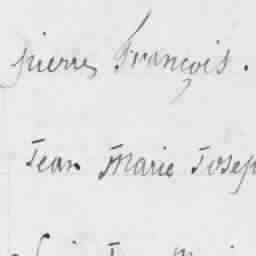 pierre François.
Jean Marie Josep